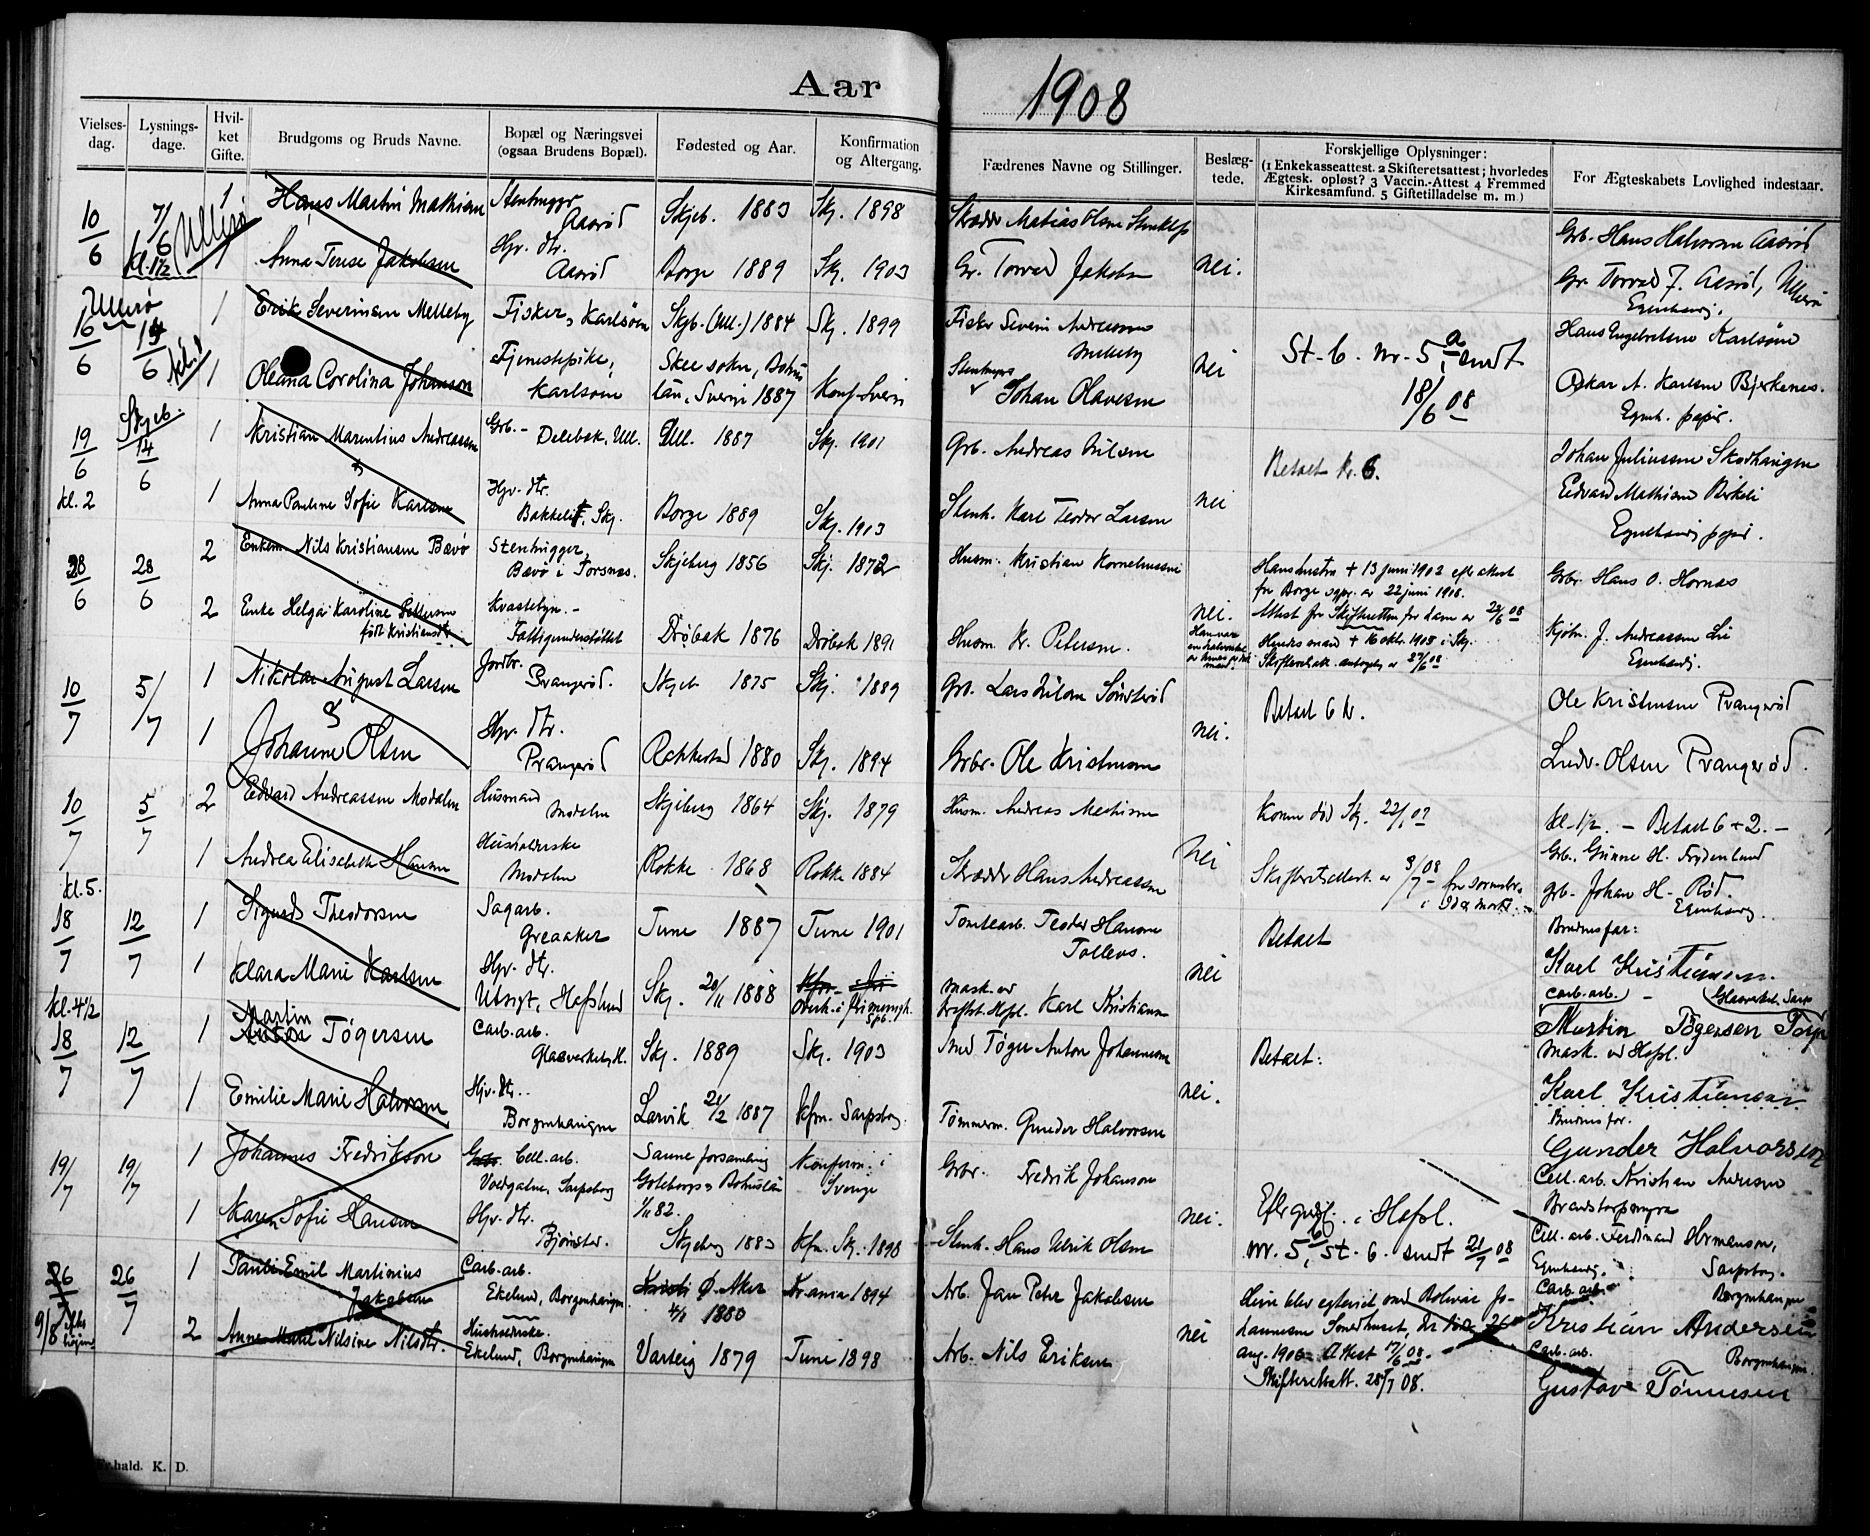 Aar 1908
Vielses-dag. Lysnings-dage. Hvil-ket Gifte. Brudgoms og Bruds Navne. Bopæl og Næringsvei (ogsaa Brudens Bopæl). Fødested og Aar. Konfirmation og Altergang. Fædrenes Navne og Stillinger. Beslæg-tede. Forskjellige Oplysninger: (1 Enkekasseattest. 2 Skifteretsattest; hvorledes Ægtesk. opløst? 3 Vaccin.-Attest 4 Fremmed Kirkesamfund. 5 Giftetilladelse m. m.) For Ægteskabets Lovlighed indestaar.
10/6 7/6 kl. 1½ Ullerø 1 Hans Martin Mathisen Stenhugger Aasrød Skjeb. 1883 Skj. 1898 Skrædder Matias Olsen Grb. Hans Halvorsen Aasrød
1 Anna Terese Jakobsen Hjv. dtr. Aasrød Borge 1889 Skj. 1903 Gr. Torvad Jakobsen nei. Gr. Torvad J. Aasrød, Ullerø
Egenhændig.
16/6 Ullerø 14/6 1 Erik Severinsen Melleby Fisker, Karlsøen Skjb. (Ull.) 1884 Skj. 1899 Fisker Severin Andreassen Melleby Hans Engebretsen Karlsøen
1 Oleana Carolina Johanson Tjenestepike, Karlsøen Skee sokn, Bohuslän, Sverige 1887 Konf. Sverige Stenhugger Johan Olavesen nei St. C. nr. 5 a sendt 18/6 08 Oskar A. Karlsen Bjerkenes.
Egenh. papir.
19/6 kl. 2 Skjeb. 14/6 1 Kristian Marentius Andreassen Grb. - Delebæk, Ull. Ull. 1887 Skj. 1901 Grb. Andreas Nilsen Betalt kr. 6. Johan Juliussen Skovhaugen
1 Anna Pauline Sofie Karlsen Hjv. dtr. Bakkeli, Skj. Borge 1889 Skj. 1903 Stenh. Karl Teodor Larsen nei Edvard Mathisen Birkeli
Egenhændig papir.
28/6 28/6 2 Enkem. Nils Kristiansen Bævø Stenhugger, Bævø i Torsnes. Skjeberg 1856 Skj. 1872 Husm. Kristian Korneliussen Hans hustru + 13 juni 1902 efter attest fra Borge sogn av 22 juni 1908. Grbr. Hans O. Hornæs
2 Enke Helga Karoline Pettersen født Kristiansdtr. Kvastebyn. - Fattigunderstøttet Drøbak 1876 Drøbak 1891 Husm. Kr. Petersen. nei. Attest fra Skifteretten for ham av 24/6 08
Hendes mand + 16 okt. 1905 i Skj. Skifteretsatt. av 27/6 08 Kjøbm. J. Andreassen Lie
Egenhændig.
10/7 5/7 1 Nikolai August Larsen Jordbr. Prangerød. Skjeb. 1875 Skj. 1889 Grb. Lars Nilsen Sønsterød Betalt 6 kr. Ole Kristensen Prangerød
1 Johanne Olsen Hjv. dtr. Prangerød Rakkestad 1880 Skj. 1894 Grbr. Ole Kristensen nei. Ludv. Olsen Prangerød.
10/7 5/7 2 Edvard Andreassen Modalen Husmand Modalen Skjeberg 1864 Skj. 1879 Husm. Andreas Mathisen Konen død Skj. kl. 1½. - Betalt 6+2. -
1 Andrea Elisabeth Hansen Husholderske Modalen Rokke 1868 Rokke 1884 Skrædder Hans Andreassen nei Skifteretsattest av 3/7 08 fra sorenskr. i Id & Marker. Grb. Gunne H. Frydenlund
Grb. Johan H. Rød.
Egenhændig.
kl. 5. 18/7 12/7 1 Sigurd Theodorsen Sagarb. Greaaker Tune 1887 Tune 1901 Tomtearb. Teodor Hansen Betalt Brudens far:
1 Klara Marie Karlsen Hjv. dtr. Utsigt, Hafslund Skj. 20/11 1888 Mask. ved Hafsl. Karl Kristiansen nei Karl Kristiansen.
kl. 4½ 18/7 12/7 1 Martin Tøgersen Carb.arb. Glasverket, H. Skj. 1889 Skj. 1903 Smed Tøger Anton Johannesen Betalt: Carb.arb. Glasverket Sarp
Martin Tøgersen Torp
Mask. ved Hafsl.
1 Emilie Marie Halvorsen Hjv. dtr. Borgenhaugen Larvik 21/2 1887 Kfm. Sarpsborg Tømmerm. Gunder Halvorsen nei. Karl Kristiansen
Brudens far.
Gunder Halvorsen
19/7 19/7 1 Johannes Fredrikson Cell. arb. Sarpsborg Sanne forsamling Göteborgs & Bohuslän 1/11 82. Konform. i Sverige Grbr. Fredrik Johanson Cell. arb. Kristian Andersen
Brandstorpmyra
1 Karen Sofie Hansen Hjv. dtr. Bjørnstad. Skjeberg 1883 kfm. Skj. 1898 Stenh. Hans Ulrik Olsen nei. i Hafsl.
nr. 5, St. 6. sendt 21/7 08 Cell. arb. Ferdinand Hermanson, Sarpsborg.
Egenhændig.
26/7 26/7 9/8 1 Paul Emil Martinius Jakobsen Carb.arb. Ekelund, Borgenhaugen Ø. Aker 4/1 1880 Kr.ania 1894 Arb. Jan Peter Jakobsen Carb.arb. Borgenhaugen
Kristian Andersen
2 Anne Marie Nilsine Nilsdtr. Husholderske. Ekelund, Borgenhaugen Varteig 1879 Tune 1898 Arb. Nils Eriksen nei aug. 1906. Attest 17/6 08. Skifteretsatt. 28/7 08. Carb. arb. Borgenhaugen.
Gustav Tønnesen
hald. K. D.